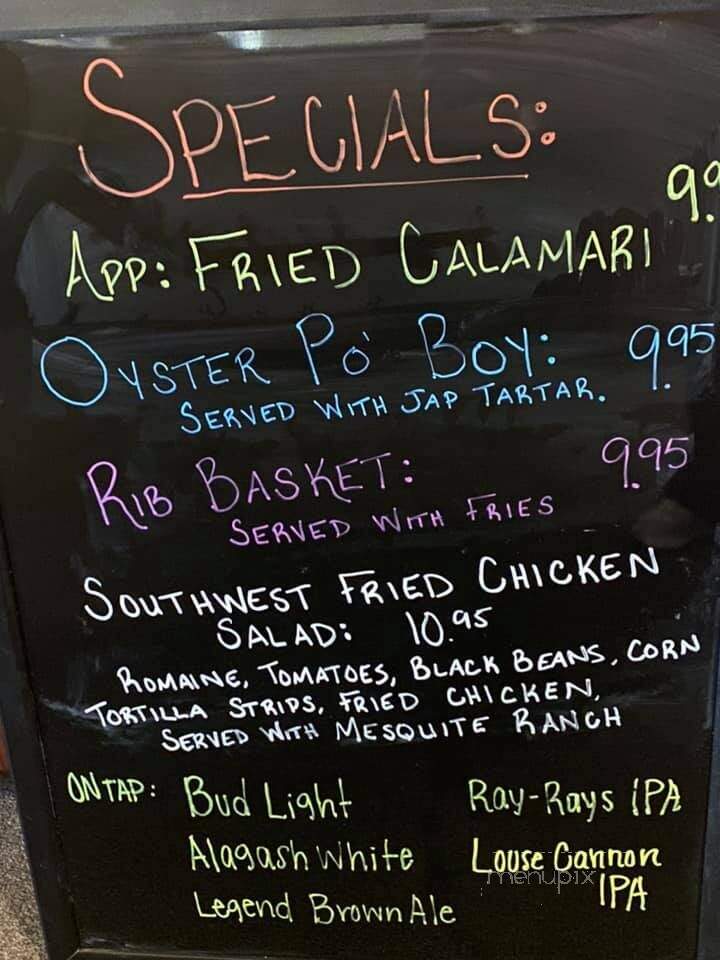 SPECIALS:
APP: FRIED CALAMARI 9.9
OYSTER PO' BOY: 9.95
SERVED WITH JAP TARTAR.
RIB BASKET: 9.95
SERVED WITH FRIES
SOUTHWEST FRIED CHICKEN
SALAD: 10.95
ROMAINE, TOMATOES, BLACK BEANS, CORN
TORTILLA STRIPS, FRIED CHICKEN,
SERVED WITH MESQUITE RANCH
ON TAP: Bud Light Ray-Rays IPA
Alagash White Louse Cannon
IPA
Legend Brown Ale
menupix